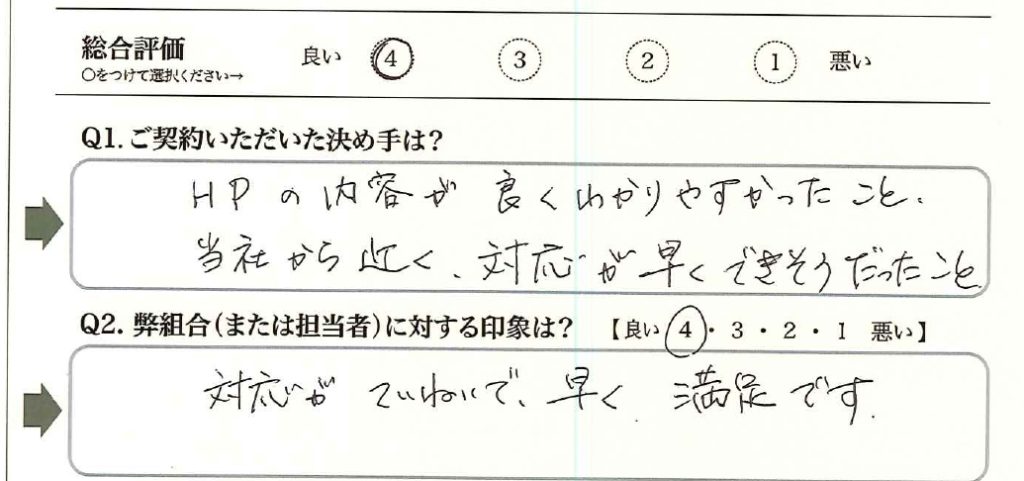 総合評価 良い 4 3 2 1 悪い
○をつけて選択ください→
Q1.ご契約いただいた決め手は?
HPの内容が良くわかりやすかったこと.
当社から近く、対応が早くできそうだったこと
Q2. 弊組合(または担当者)に対する印象は? 【良い 4・3・2・1 悪い】
対応がていねいで、早く 満足です.